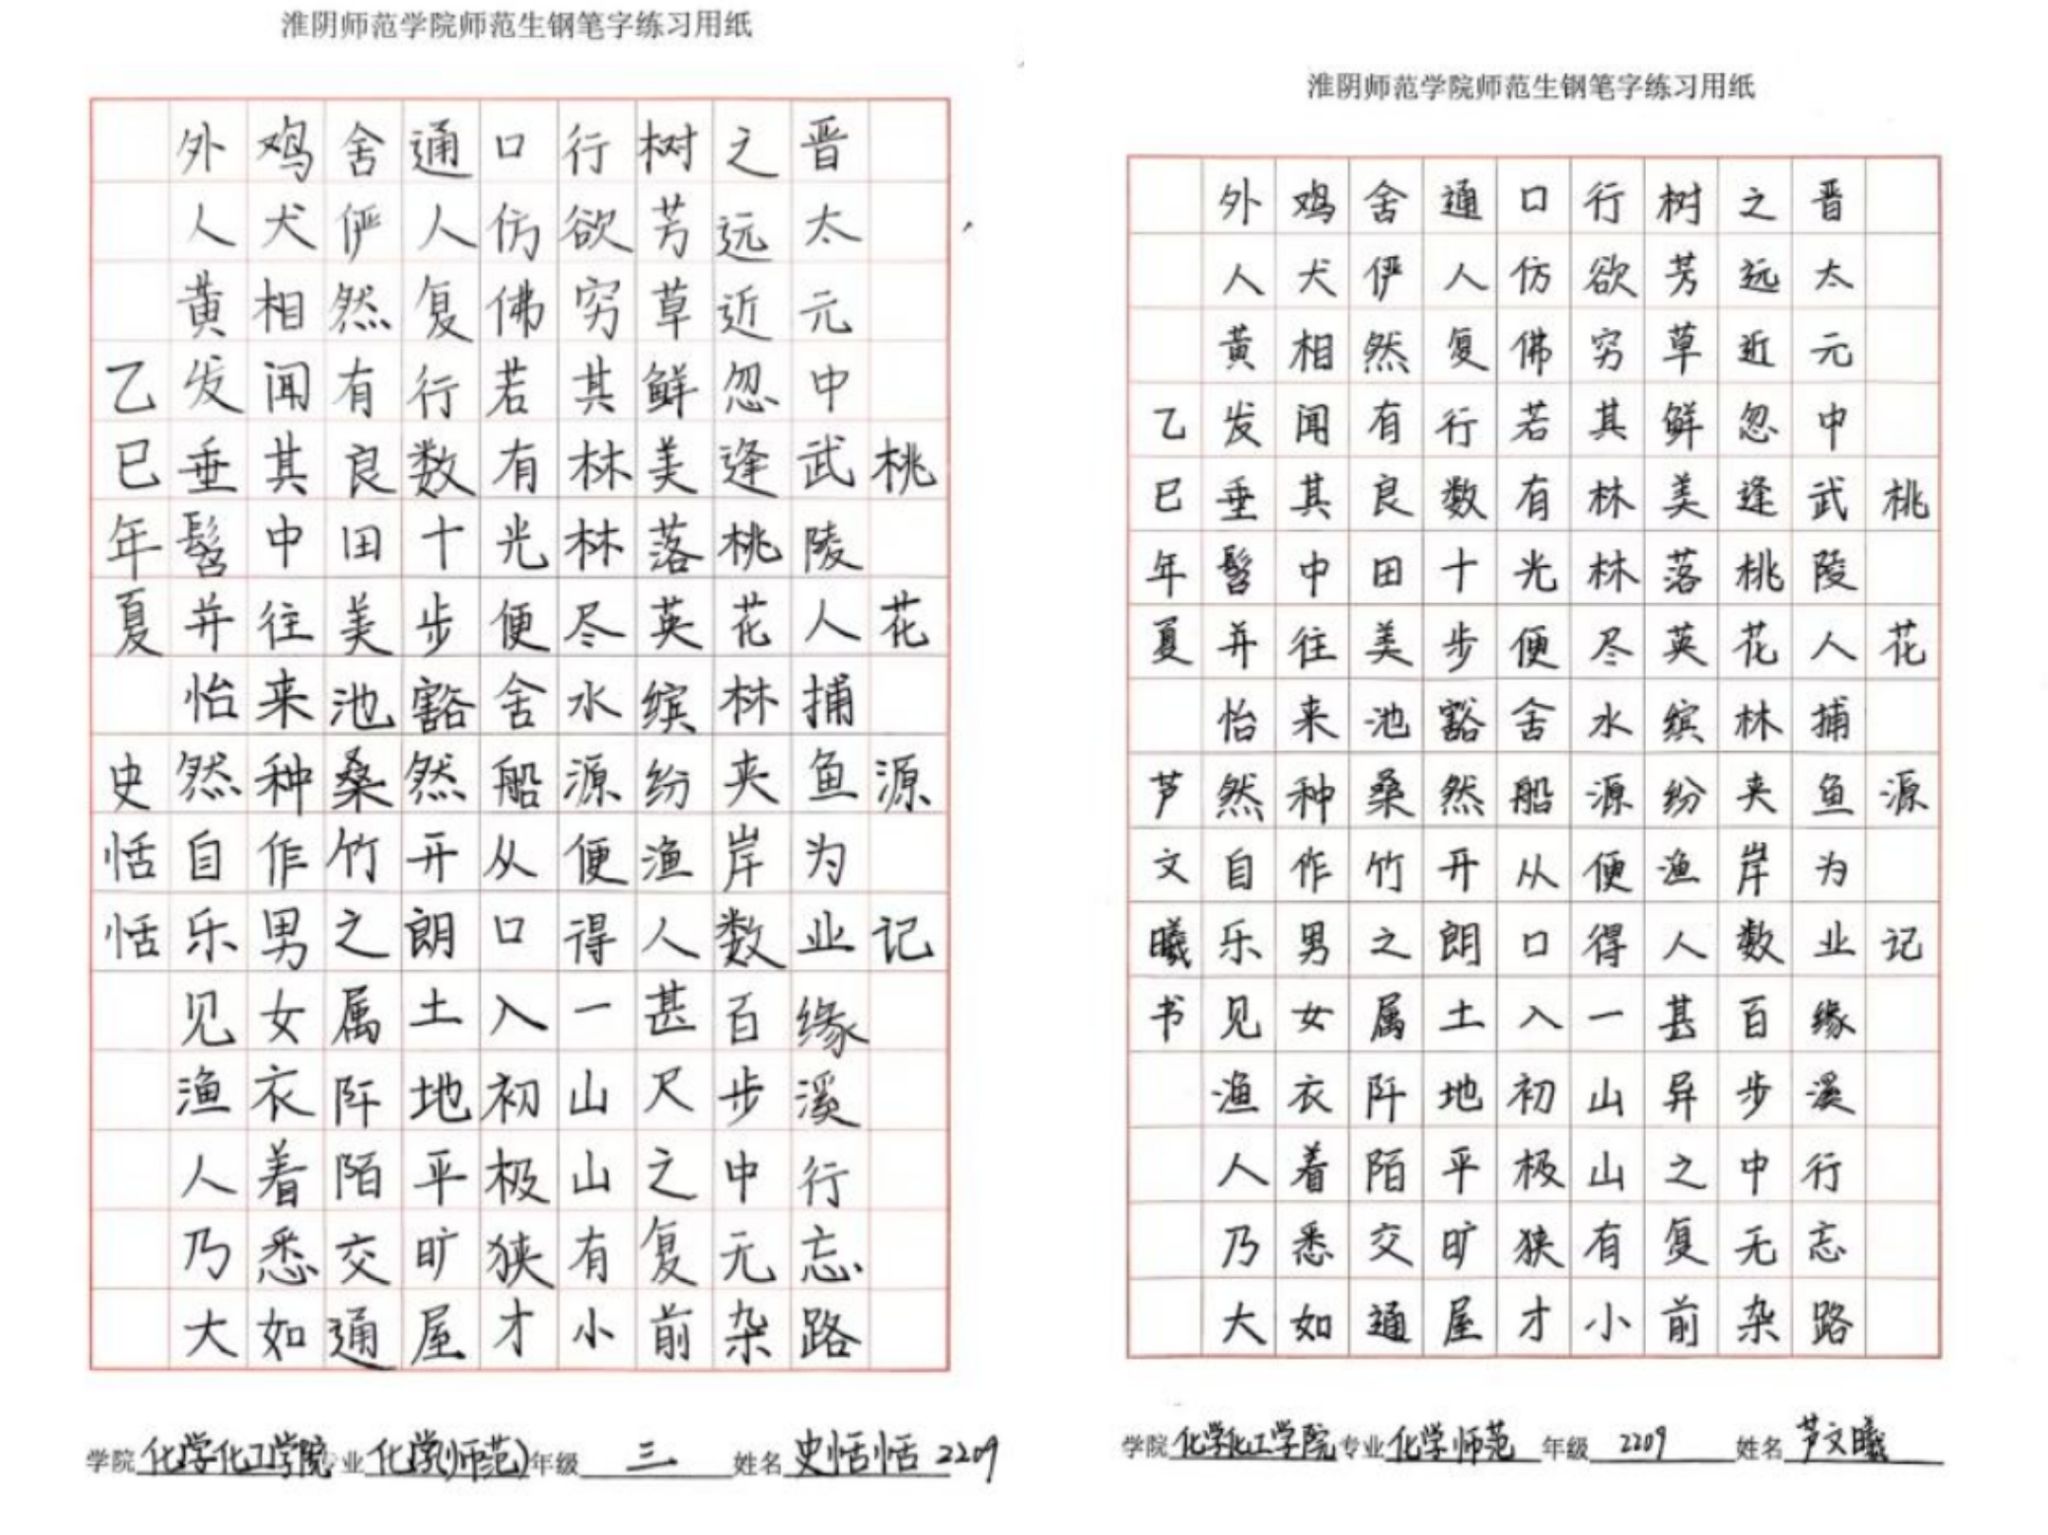 淮阴师范学院师范生钢笔字练习用纸
桃花源记
晋太元中武陵人捕鱼为业缘溪行忘路
之远近忽逢桃花林夹岸数百步中无杂
树芳草鲜美落英缤纷渔人甚尺之复前
行欲穷其林林尽水源便得一山山有小
口仿佛若有光便舍船从口入初极狭才
通人复行数十步豁然开朗土地平旷屋
舍俨然有良田美池桑竹之属阡陌交通
鸡犬相闻其中往来种作男女衣着悉如
外人黄发垂髫并怡然自乐见渔人乃大
乙巳年夏 史恬恬
学院 化学化工学院 专业 化学(师范) 年级 三 姓名 史恬恬 2209
淮阴师范学院师范生钢笔字练习用纸
桃花源记
晋太元中武陵人捕鱼为业缘溪行忘路
之远近忽逢桃花林夹岸数百步中无杂
树芳草鲜美落英缤纷渔人甚异之复前
行欲穷其林林尽水源便得一山山有小
口仿佛若有光便舍船从口入初极狭才
通人复行数十步豁然开朗土地平旷屋
舍俨然有良田美池桑竹之属阡陌交通
鸡犬相闻其中往来种作男女衣着悉如
外人黄发垂髫并怡然自乐见渔人乃大
乙巳年夏 芦文曦书
学院 化学化工学院 专业 化学师范 年级 2209 姓名 芦文曦